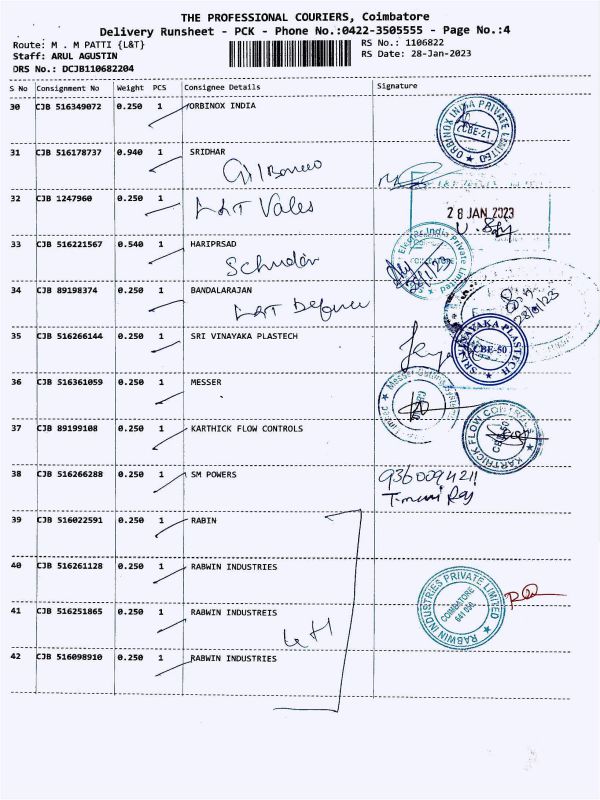 THE PROFESSIONAL COURIERS, Coimbatore
Delivery Runsheet - PCK - Phone No.:0422-3505555 - Page No.:4
Route: M . M PATTI {L&T}
RS No.: 1106822
Staff: ARUL AGUSTIN
RS Date: 28-Jan-2023
DRS No.: DCJB110682204
S No Consignment No Weight PCS Consignee Details Signature
30 CJB 516349072 0.250 1 ORBINOX INDIA
ORBINOX INDIA PRIVATE LIMITED CBE-21
31 CJB 516178737 0.940 1 SRIDHAR
32 CJB 1247960 0.250 1 L&T Vales
28 JAN 2023
33 CJB 516221567 0.540 1 HARIPRSAD
India Private Limited
34 CJB 89198374 0.250 1 BANDALARAJAN
L&T Defence
28/1/23
35 CJB 516266144 0.250 1 SRI VINAYAKA PLASTECH
SRI VINAYAKA PLASTECH CBE-50
36 CJB 516361059 0.250 1 MESSER
Messer Cutting Systems
37 CJB 89199108 0.250 1 KARTHICK FLOW CONTROLS
KARTHICK FLOW CONTROLS
38 CJB 516266288 0.250 1 SM POWERS
9360094211
39 CJB 516022591 0.250 1 RABIN
40 CJB 516261128 0.250 1 RABWIN INDUSTRIES
RABWIN INDUSTRIES PRIVATE LIMITED COIMBATORE
41 CJB 516251865 0.250 1 RABWIN INDUSTREIS
42 CJB 516098910 0.250 1 RABWIN INDUSTRIES